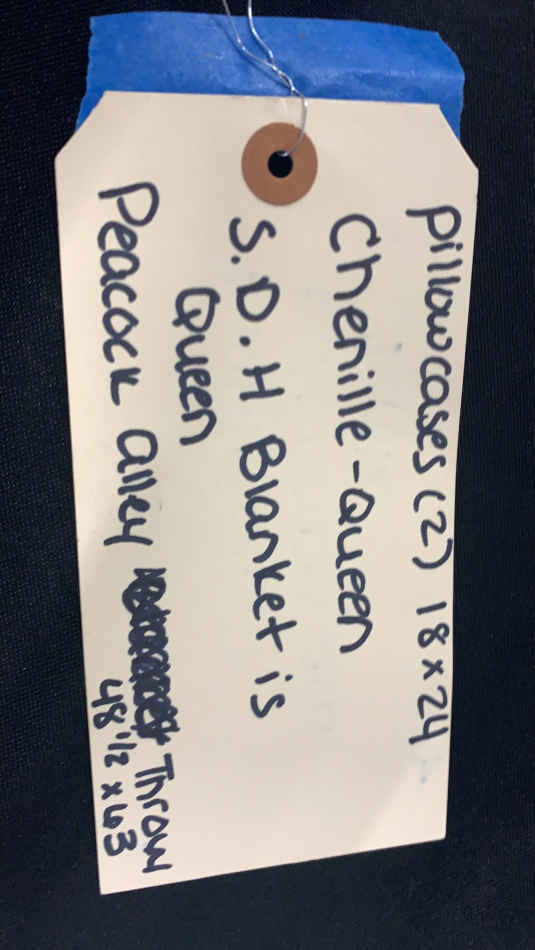 Pillowcases (2) 18x24
Chenille-Queen
S.D.H Blanket is
Queen
Peacock Alley Throw
48 1/2 x 63